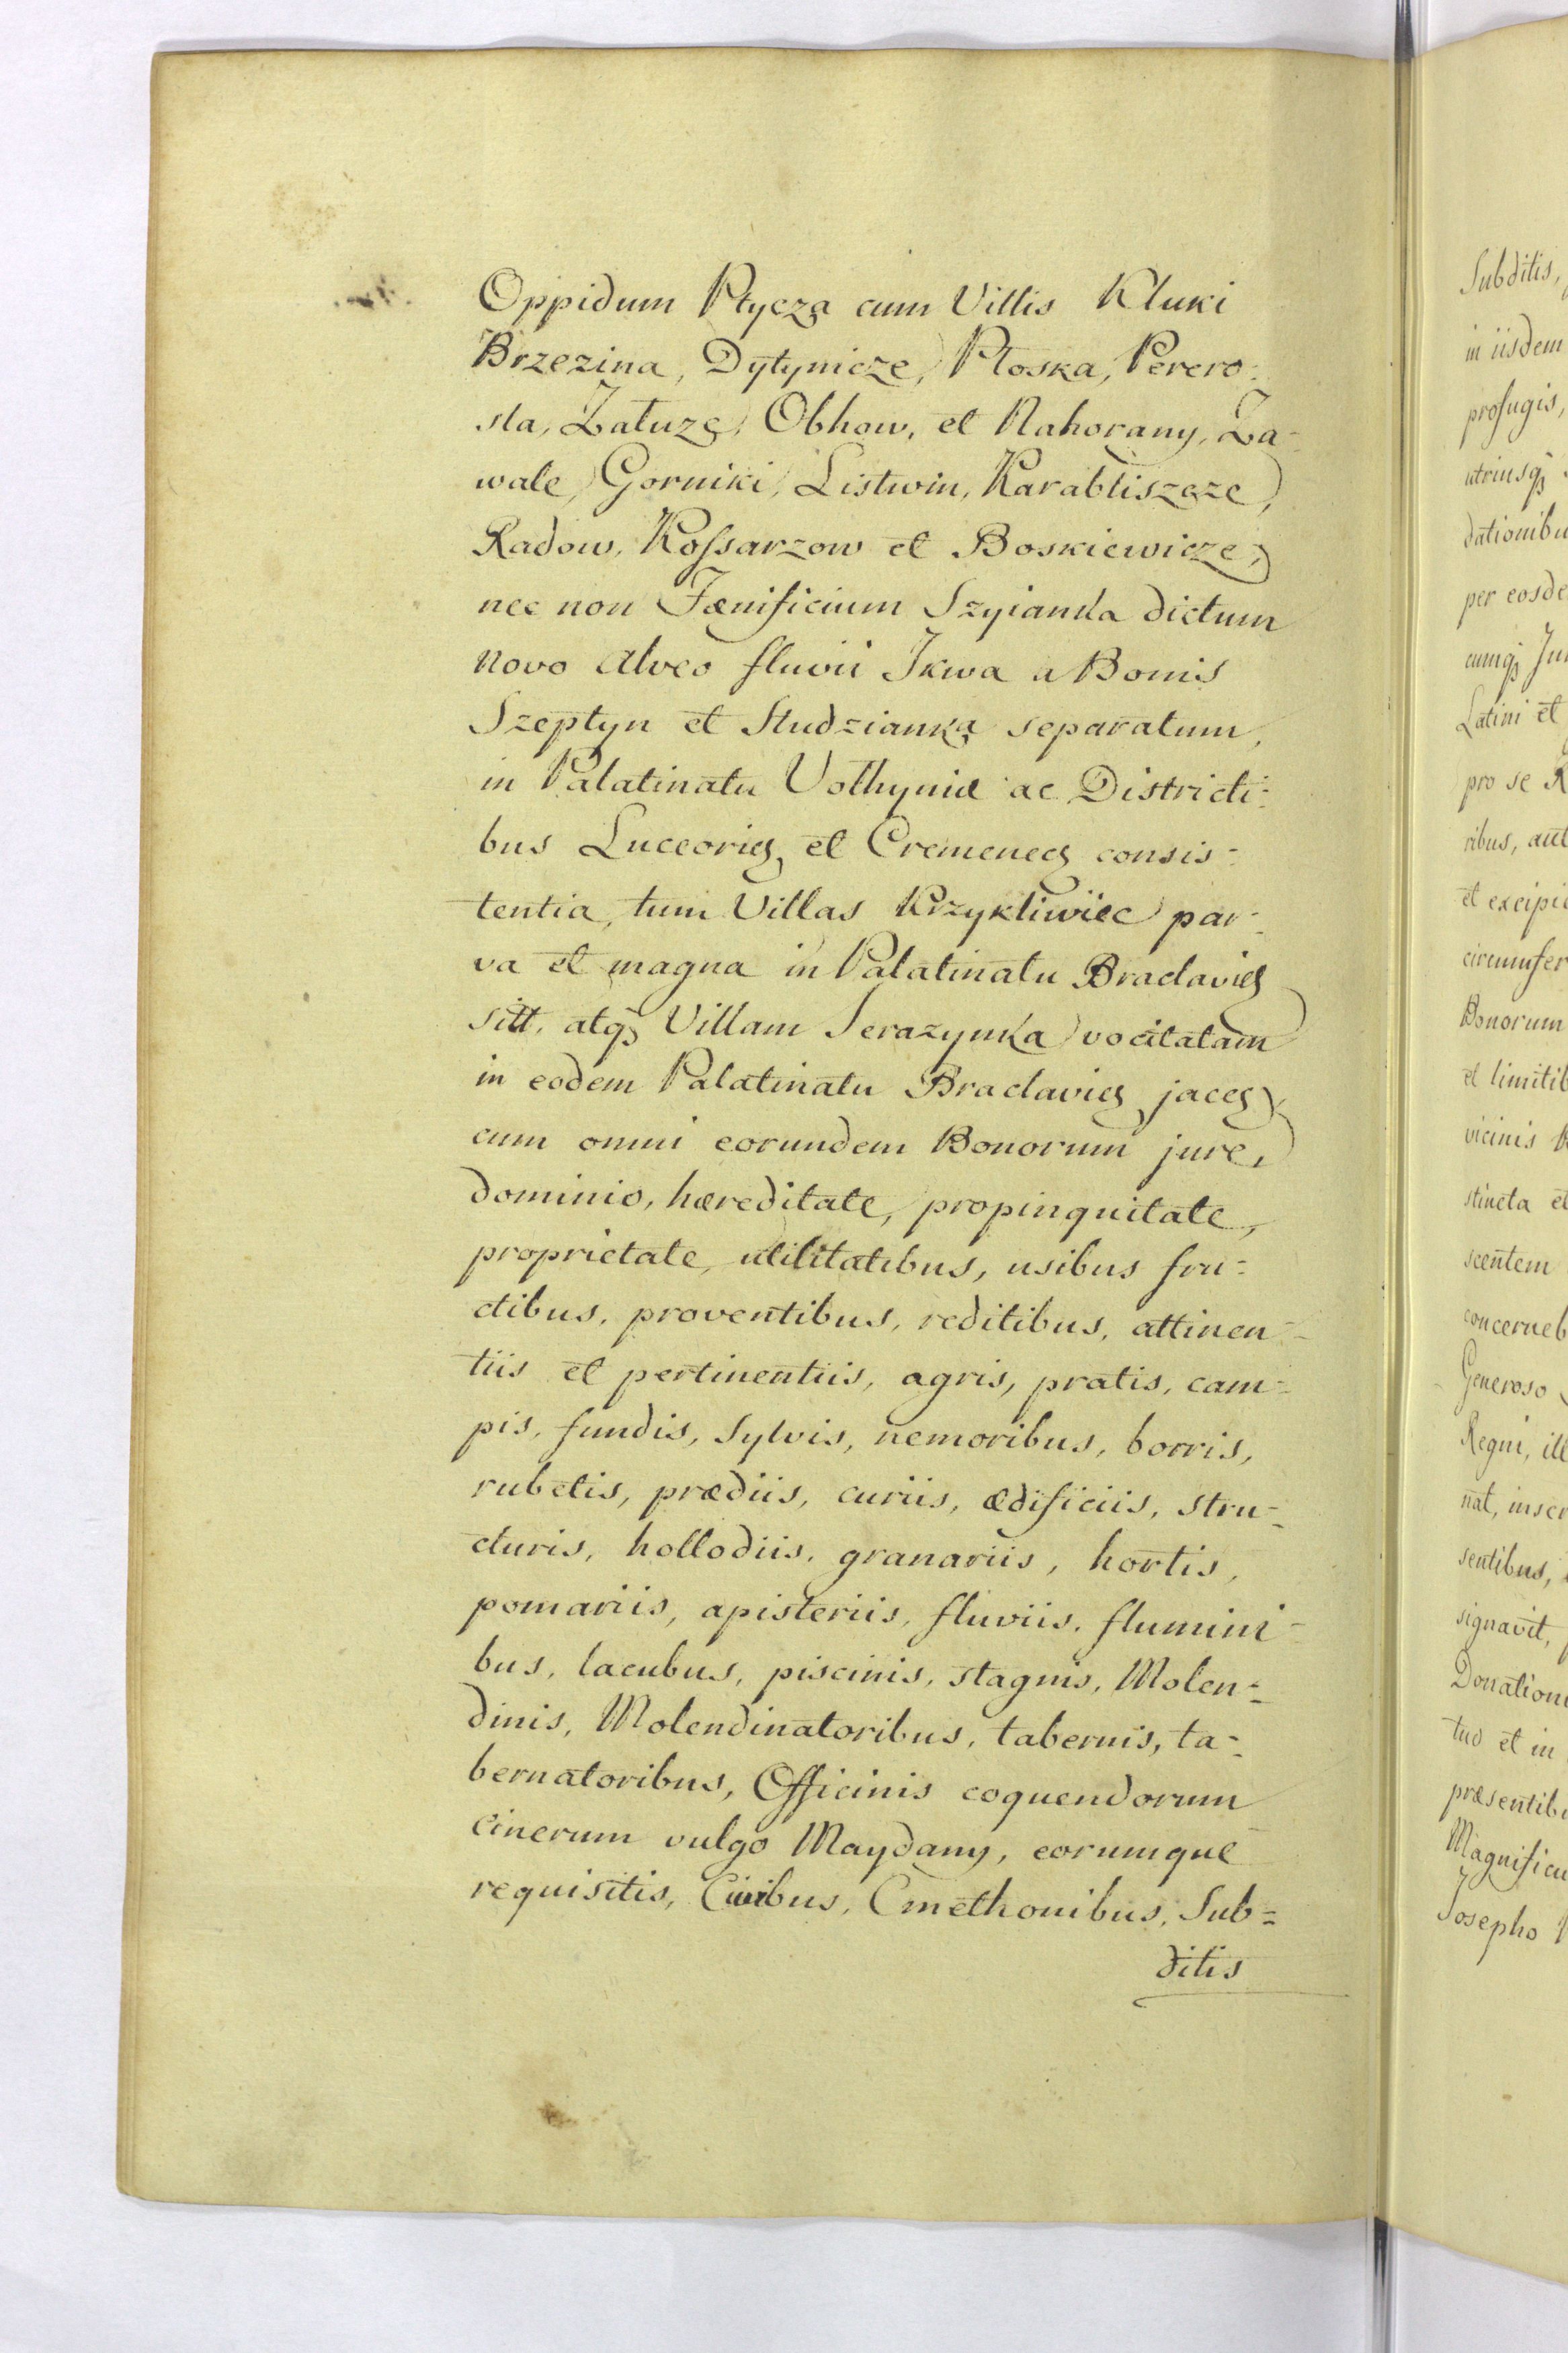 Oppidum Ptycza cum Villis Kluki
Brzezina, Dytynicze, Ptoska, Perero-
sta, Zatuze, Obhow, et Nahorany, Za-
wale, Gorniki, Listwin, Karabliszcze,
Radow, Kossarzow et Boskiewicze,
nec non Fænificium Szyianka dictum
novo alveo fluvii Ikwa a Bonis
Szeptyn et Studzianka separatum,
in Palatinatu Volhyniæ ac Districti-
bus Luceorien et Cremenecen consis-
tentia, tum Villas Krzykliwiec par-
va et magna in Palatinatu Braclavien
sitt. atq; Villam Serazynka vocitatam
in eodem Palatinatu Braclavien jacen
cum omni eorundem Bonorum jure,
dominio, hæreditate, propinquitate,
proprietate, utilitatibus, usibus fru-
ctibus, proventibus, reditibus, attinen-
tiis et pertinentiis, agris, pratis, cam-
pis, fundis, Sylvis, nemoribus, borris,
rubetis, prædiis, curiis, ædificiis, stru-
cturis, hollodiis, granariis, hortis,
pomariis, apisteriis, fluviis, flumini-
bus, lacubus, piscinis, stagnis, Molen-
dinis, Molendinatoribus, tabernis, ta-
bernatoribus, Officinis coquendorum
Cinerum vulgo Maydany, eorumque
requisitis, Civibus, Cmethonibus, Sub-
ditis
Subditis,
in iisdem
profugis,
utriusq;
per
cumq;
Latini et
pro se
ribus,
et
Bonorum
et
vicinis
stincta et
scentem
Generoso
Regni,
nat,
sentibus,
signavit,
tud et in
Josepho